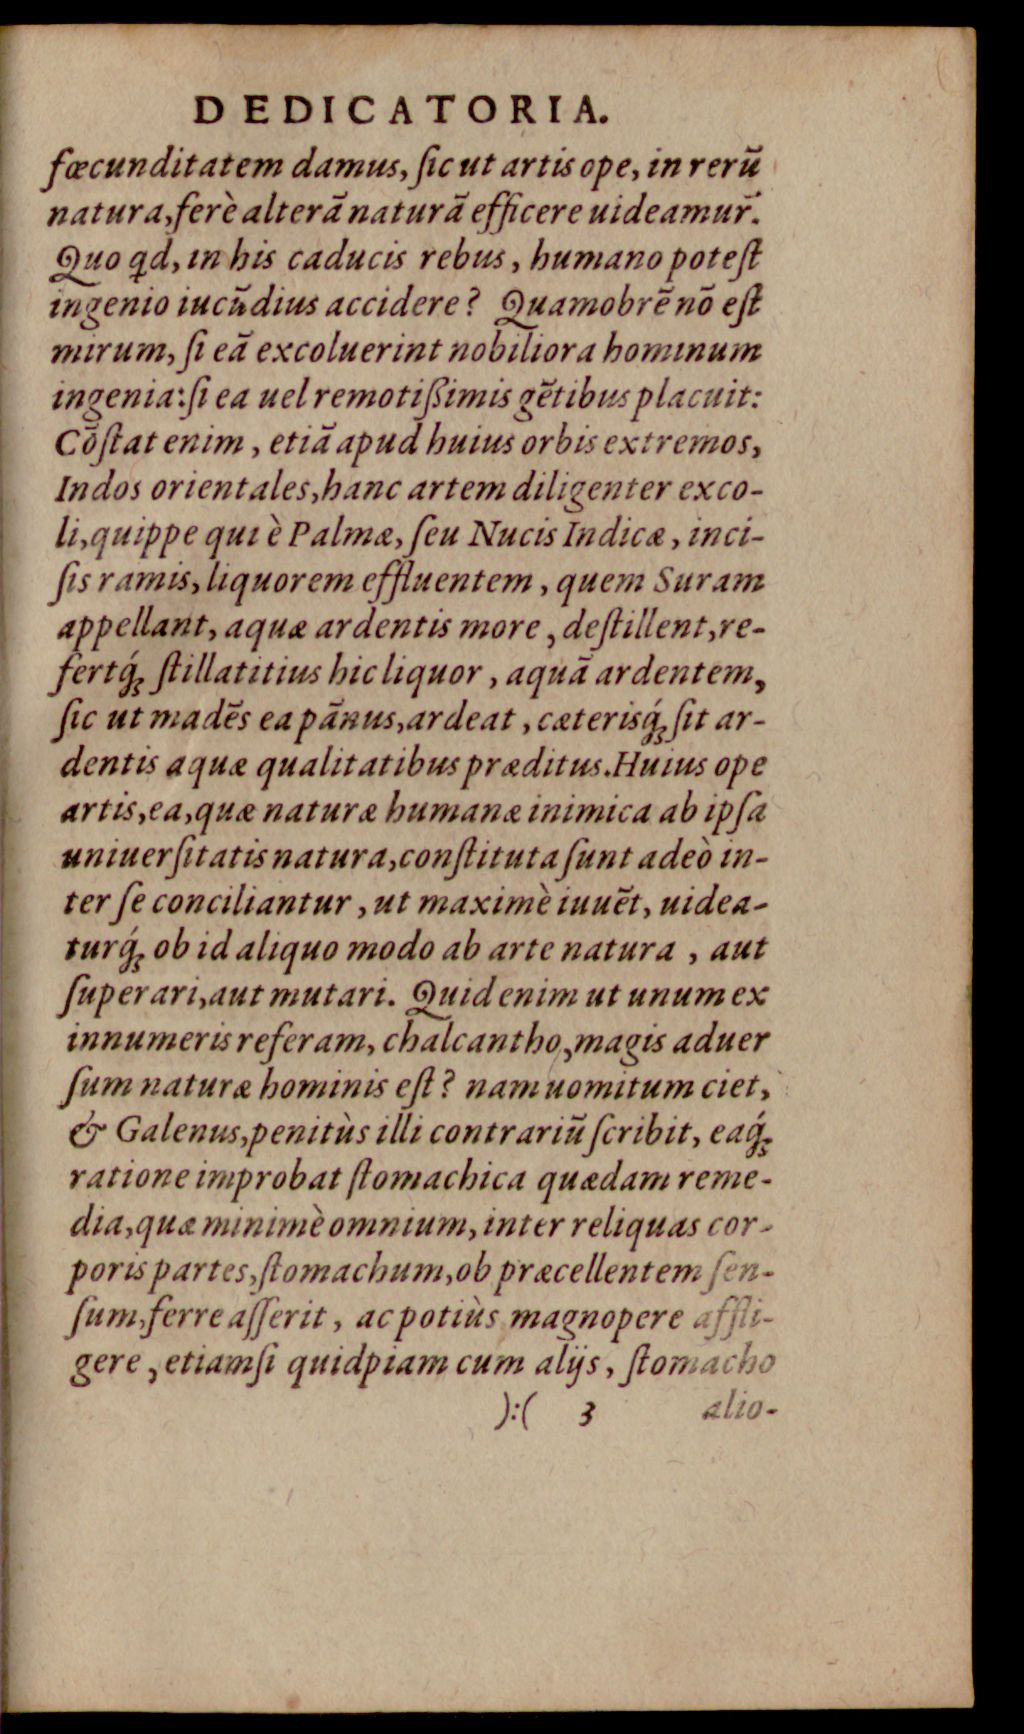 DEDICATORIA.
fœcunditatem damus, ſic ut artis ope, in rerū
natura, ferè alterā naturā efficere uideamur̃.
Quo qd, in his caducis rebus, humano poteſt
ingenio iucūdius accidere? Quamobrē nō eſt
mirum, ſi eā excoluerint nobiliora hominum
ingenia: ſi ea uel remotißimis gētibus placuit:
Cōſtat enim, etiā apud huius orbis extremos,
Indos orientales, hanc artem diligenter exco-
li, quippe qui è Palmæ, ſeu Nucis Indicæ, inci-
ſis ramis, liquorem effluentem, quem Suram
appellant, aquæ ardentis more, deſtillent, re-
fertq́ꝫ ſtillatitius hic liquor, aquā ardentem,
ſic ut madēs ea pānus, ardeat, cæterisq́ꝫ ſit ar-
dentis aquæ qualitatibus præditus. Huius ope
artis, ea, quæ naturæ humanæ inimica ab ipſa
uniuerſitatis natura, conſtituta ſunt adeò in-
ter ſe conciliantur, ut maximè iuuēt, uidea-
turq́ꝫ ob id aliquo modo ab arte natura, aut
ſuperari, aut mutari. Quid enim ut unum ex
innumeris referam, chalcantho, magis aduer
ſum naturæ hominis eſt? nam uomitum ciet,
& Galenus, penitùs illi contrariū ſcribit, eaq́ꝫ
ratione improbat ſtomachica quædam reme-
dia, quæ minimè omnium, inter reliquas cor-
poris partes, ſtomachum, ob præcellentem ſen-
ſum, ferre aſſerit, ac potiùs magnopere affli-
gere, etiamſi quidpiam cum alijs, ſtomacho
):( 3 alio-